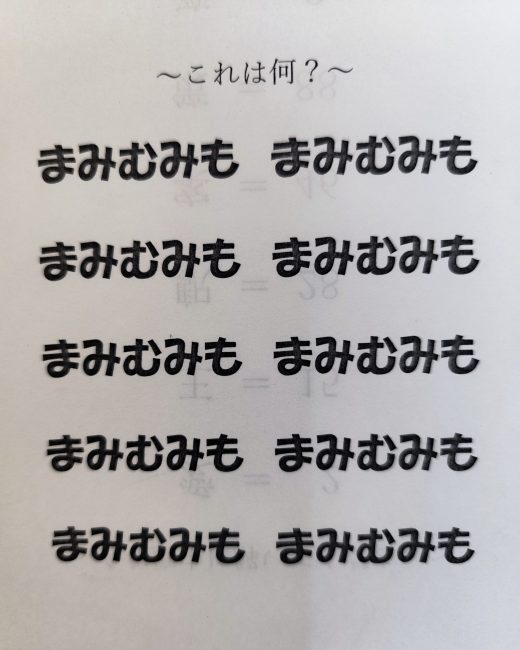 ～これは何？～
まみむみも　まみむみも
まみむみも　まみむみも
まみむみも　まみむみも
まみむみも　まみむみも
まみむみも　まみむみも